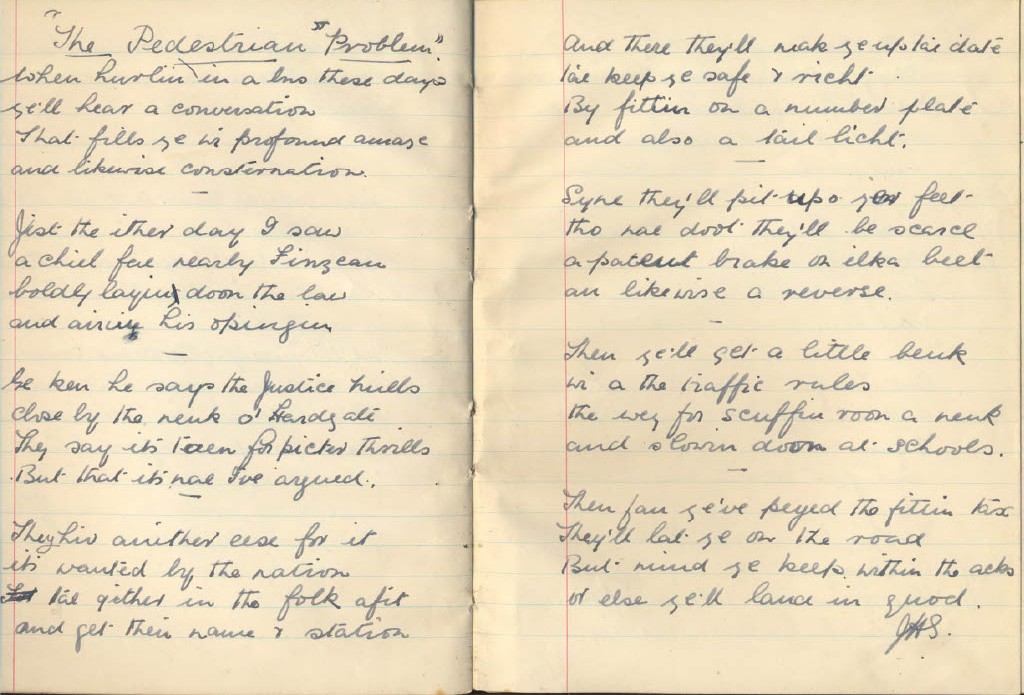 "The Pedestrian" "Problem"
When hurlin in a bus these days
ye'll hear a conversation
That fills ye wi profound amaze
and likewise consternation.
Jist the ither day I saw
a chiel fae nearby Finzean
boldly layin doon the law
and airin his opingun
Ye ken he says the Justice Mills
close by the neuk o' Hardgate
They say its taen for picter thrills
But that its nae I've argued.
They hiv anither eese for it
its wanted by the nation
tae gether in the folk afit
and get their name & station
And there they'll mak ye up tae date
tae keep ye safe & richt
By fittin on a number plate
and also a tail licht.
Syne they'll pit upo yer feet
tho nae doot they'll be scarce
a patent brake on ilka beet
an likewise a reverse.
Then ye'll get a little beuk
wi a the traffic rules
the wey for scuffin roon a neuk
and slowin doon at schools.
Then fan ye've peyed the fittin tax
They'll lat ye on the road
But mind ye keep within the acks
or else ye'll land in quod.
JHS.